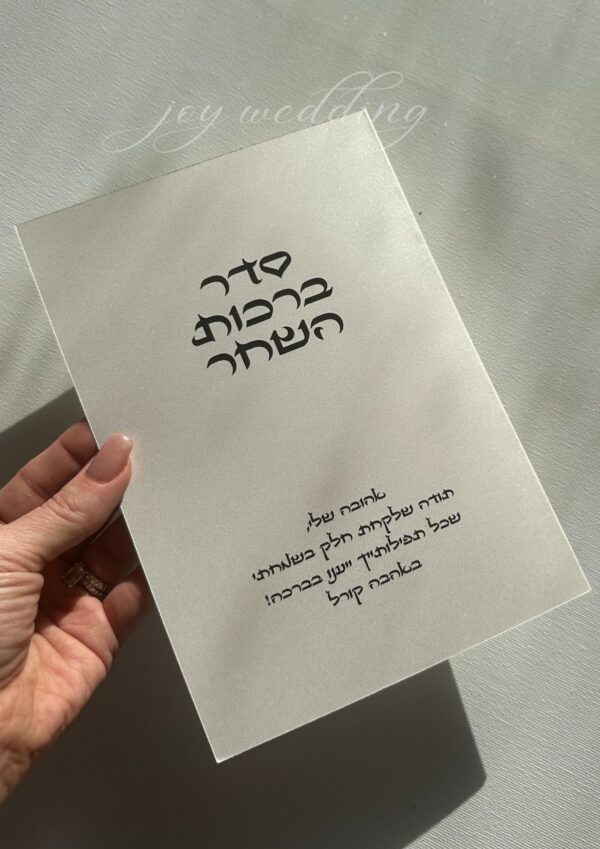 joy wedding
סדר
ברכות
השחר
אהובה שלי,
תודה שלקחת חלק בשמחתי
שכל תפילותייך ייענו בברכה!
באהבה קורל